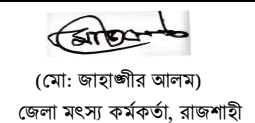 (মো: জাহাঙ্গীর আলম)
জেলা মৎস্য কর্মকর্তা, রাজশাহী